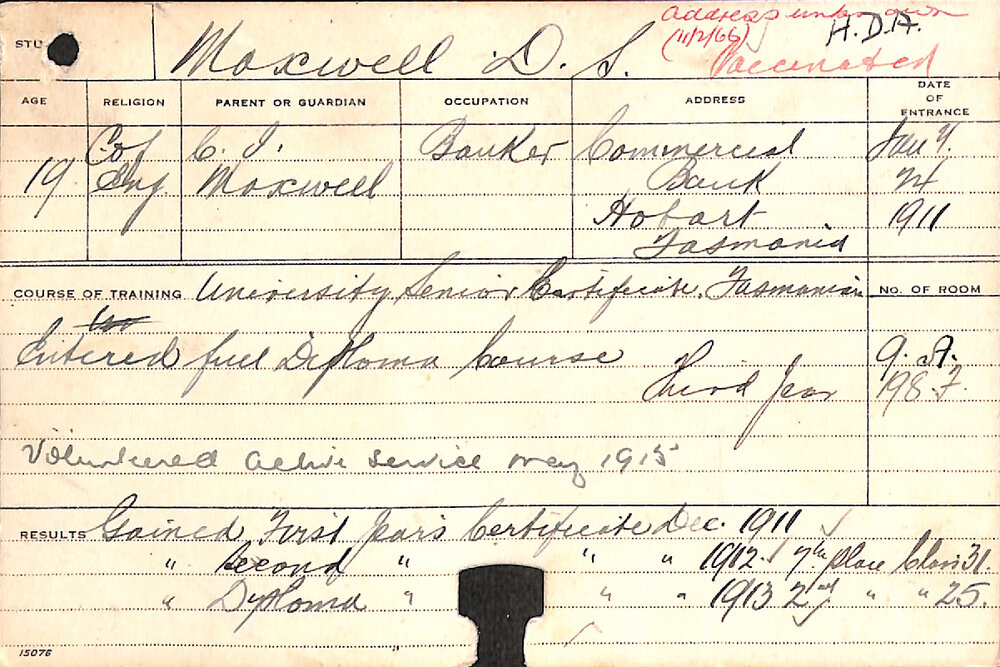 Address unknown
(11/2/66) H.D.A.
STU Maxwell D. S. Vaccinated
AGE RELIGION PARENT OR GUARDIAN OCCUPATION ADDRESS DATE OF ENTRANCE
19 C of Eng C. I. Maxwell Banker Commercial Bank Hobart Tasmania Jan 4. 1911
COURSE OF TRAINING University Senior Certificate. Tasmanian NO. OF ROOM
Entered full Diploma Course 9. A.
Third Year 198. F.
Volunteered active service may 1915
RESULTS Gained First Year's Certificate Dec. 1911
" Second " " " 1912. 7th place Class 31.
" Diploma " " " 1913 2nd " " 25.
15076